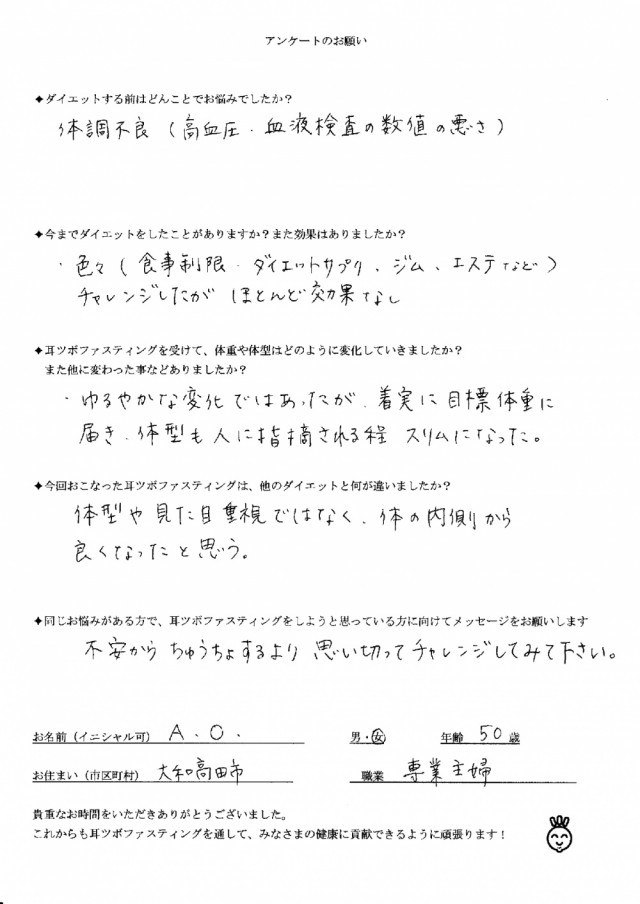 アンケートのお願い
✦ダイエットする前はどんことでお悩みでしたか？
体調不良（高血圧・血液検査の数値の悪さ）
✦今までダイエットをしたことがありますか？また効果はありましたか？
・色々（食事制限・ダイエットサプリ、ジム、エステなど）
チャレンジしたが ほとんど効果なし
✦耳ツボファスティングを受けて、体重や体型はどのように変化していきましたか？
また他に変わった事などありましたか？
・ゆるやかな変化ではあったが、着実に目標体重に
届き、体型も人に指摘される程 スリムになった。
✦今回おこなった耳ツボファスティングは、他のダイエットと何が違いましたか？
体型や見た目重視ではなく、体の内側から
良くなったと思う。
✦同じお悩みがある方で、耳ツボファスティングをしようと思っている方に向けてメッセージをお願いします
不安から ちゅうちょするより 思い切ってチャレンジしてみて下さい。
お名前（イニシャル可） A．O． 男・女 年齢 50 歳
お住まい（市区町村） 大和高田市 職業 専業主婦
貴重なお時間をいただきありがとうございました。
これからも耳ツボファスティングを通して、みなさまの健康に貢献できるように頑張ります！